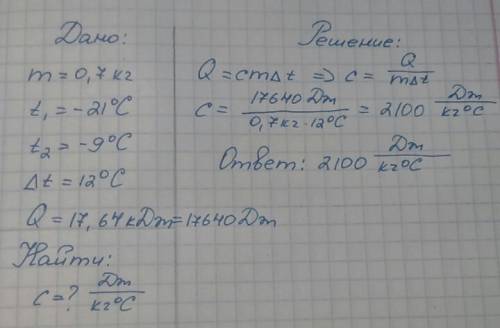 Дано:
m = 0,7 кг
t₁ = -21°C
t₂ = -9°C
Δt = 12°C
Q = 17,64 кДж = 17640 Дж
Найти:
c = ? Дж/кг°C
Решение:
Q = cmΔt ⇒ c = Q/mΔt
c = 17640 Дж/0,7 кг · 12°C = 2100 Дж/кг°C
Ответ: 2100 Дж/кг°C